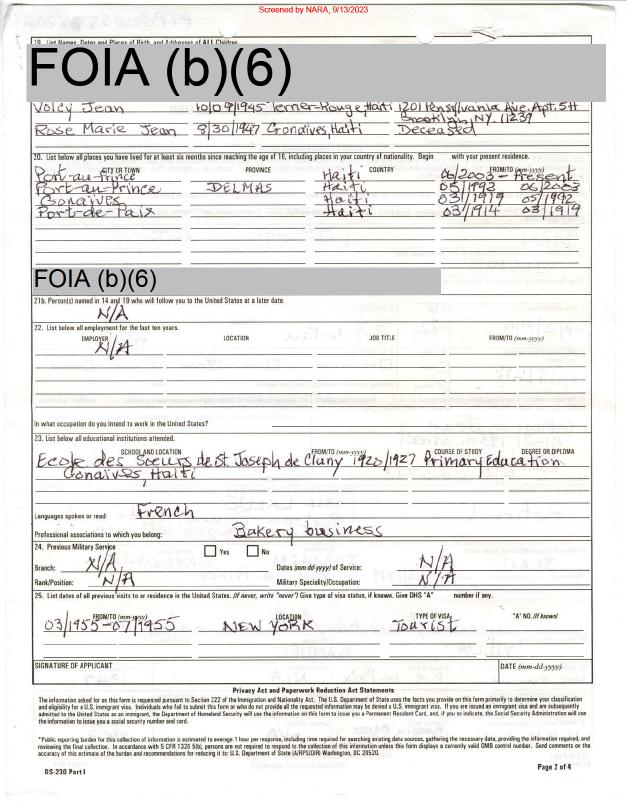 Screened by NARA, 9/13/2023
19. List Names, Dates and Places of Birth, and Addresses of ALL Children.
FOIA (b)(6)
Volcy Jean 10/09/1945 Terner-Rouge, Haiti 1201 Pensylvania Ave. Apt. 5H
Brooklin, NY. 11239
Rose Marie Jean 8/30/1947 Gonaives, Haiti Deceased
20. List below all places you have lived for at least six months since reaching the age of 16, including places in your country of nationality. Begin with your present residence.
CITY OR TOWN PROVINCE COUNTRY FROM/TO (mm-yyyy)
Port-au-Prince Haiti 06/2003 - Present
Port-au-Prince DELMAS Haiti 05/1992 06/2003
Gonaives Haiti 03/1919 05/1992
Port-de-Paix Haiti 03/1914 03/1919
FOIA (b)(6)
21b. Person(s) named in 14 and 19 who will follow you to the United States at a later date.
N/A
22. List below all employment for the last ten years.
EMPLOYER LOCATION JOB TITLE FROM/TO (mm-yyyy)
N/A
In what occupation do you intend to work in the United States?
23. List below all educational institutions attended.
SCHOOL AND LOCATION FROM/TO (mm-yyyy) COURSE OF STUDY DEGREE OR DIPLOMA
Ecole des Soeurs de St. Joseph de Cluny 1920/1927 Primary Education
Gonaives, Haiti
Languages spoken or read: French
Professional associations to which you belong: Bakery business
24. Previous Military Service Yes No
Branch: N/A Dates (mm-dd-yyyy) of Service: N/A
Rank/Position: N/A Military Speciality/Occupation: N/A
25. List dates of all previous visits to or residence in the United States. (If never, write "never") Give type of visa status, if known. Give DHS "A" number if any.
FROM/TO (mm-yyyy) LOCATION TYPE OF VISA "A" NO. (If known)
03/1955-07/1955 NEW YORK Tourist
SIGNATURE OF APPLICANT DATE (mm-dd-yyyy)
Privacy Act and Paperwork Reduction Act Statements
The information asked for on this form is requested pursuant to Section 222 of the Immigration and Nationality Act. The U.S. Department of State uses the facts you provide on this form primarily to determine your classification
and eligibility for a U.S. immigrant visa. Individuals who fail to submit this form or who do not provide all the requested information may be denied a U.S. immigrant visa. If you are issued an immigrant visa and are subsequently
admitted to the United States as an immigrant, the Department of Homeland Security will use the information on this form to issue you a Permanent Resident Card, and, if you so indicate, the Social Security Administration will use
the information to issue you a social security number and card.
*Public reporting burden for this collection of information is estimated to average 1 hour per response, including time required for searching existing data sources, gathering the necessary data, providing the information required, and
reviewing the final collection. In accordance with 5 CFR 1320 5(b), persons are not required to respond to the collection of this information unless this form displays a currently valid OMB control number. Send comments on the
accuracy of this estimate of the burden and recommendations for reducing it to: U.S. Department of State (A/RPS/DIR) Washington, DC 20520.
DS-230 Part I Page 2 of 4